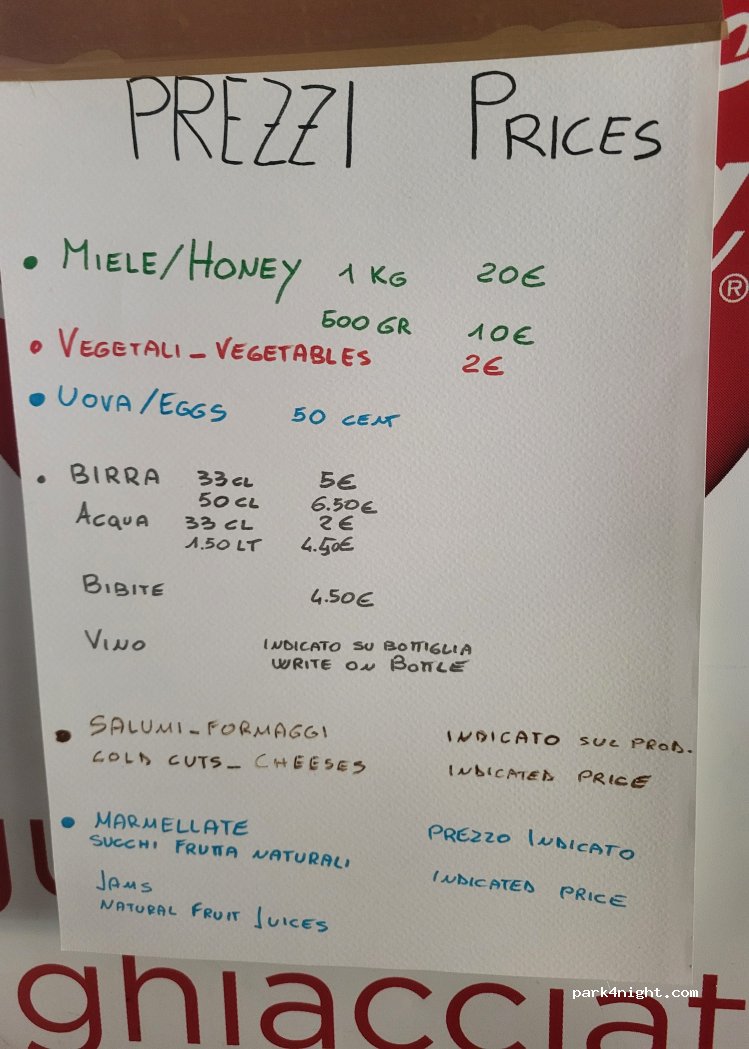 PREZZI PRICES
• MIELE/HONEY 1 KG 20€
500 GR 10€
• VEGETALI_VEGETABLES 2€
• UOVA/EGGS 50 CENT
• BIRRA 33 CL 5€
50 CL 6.50€
ACQUA 33 CL 2€
1.50 LT 4.50€
BIBITE 4.50€
VINO INDICATO SU BOTTIGLIA
WRITE ON BOTTLE
• SALUMI_FORMAGGI INDICATO SUL PROD.
COLD CUTS_ CHEESES INDICATED PRICE
• MARMELLATE PREZZO INDICATO
SUCCHI FRUTTA NATURALI
JAMS INDICATED PRICE
NATURAL FRUIT JUICES
®
ghiacciat
park4night.com